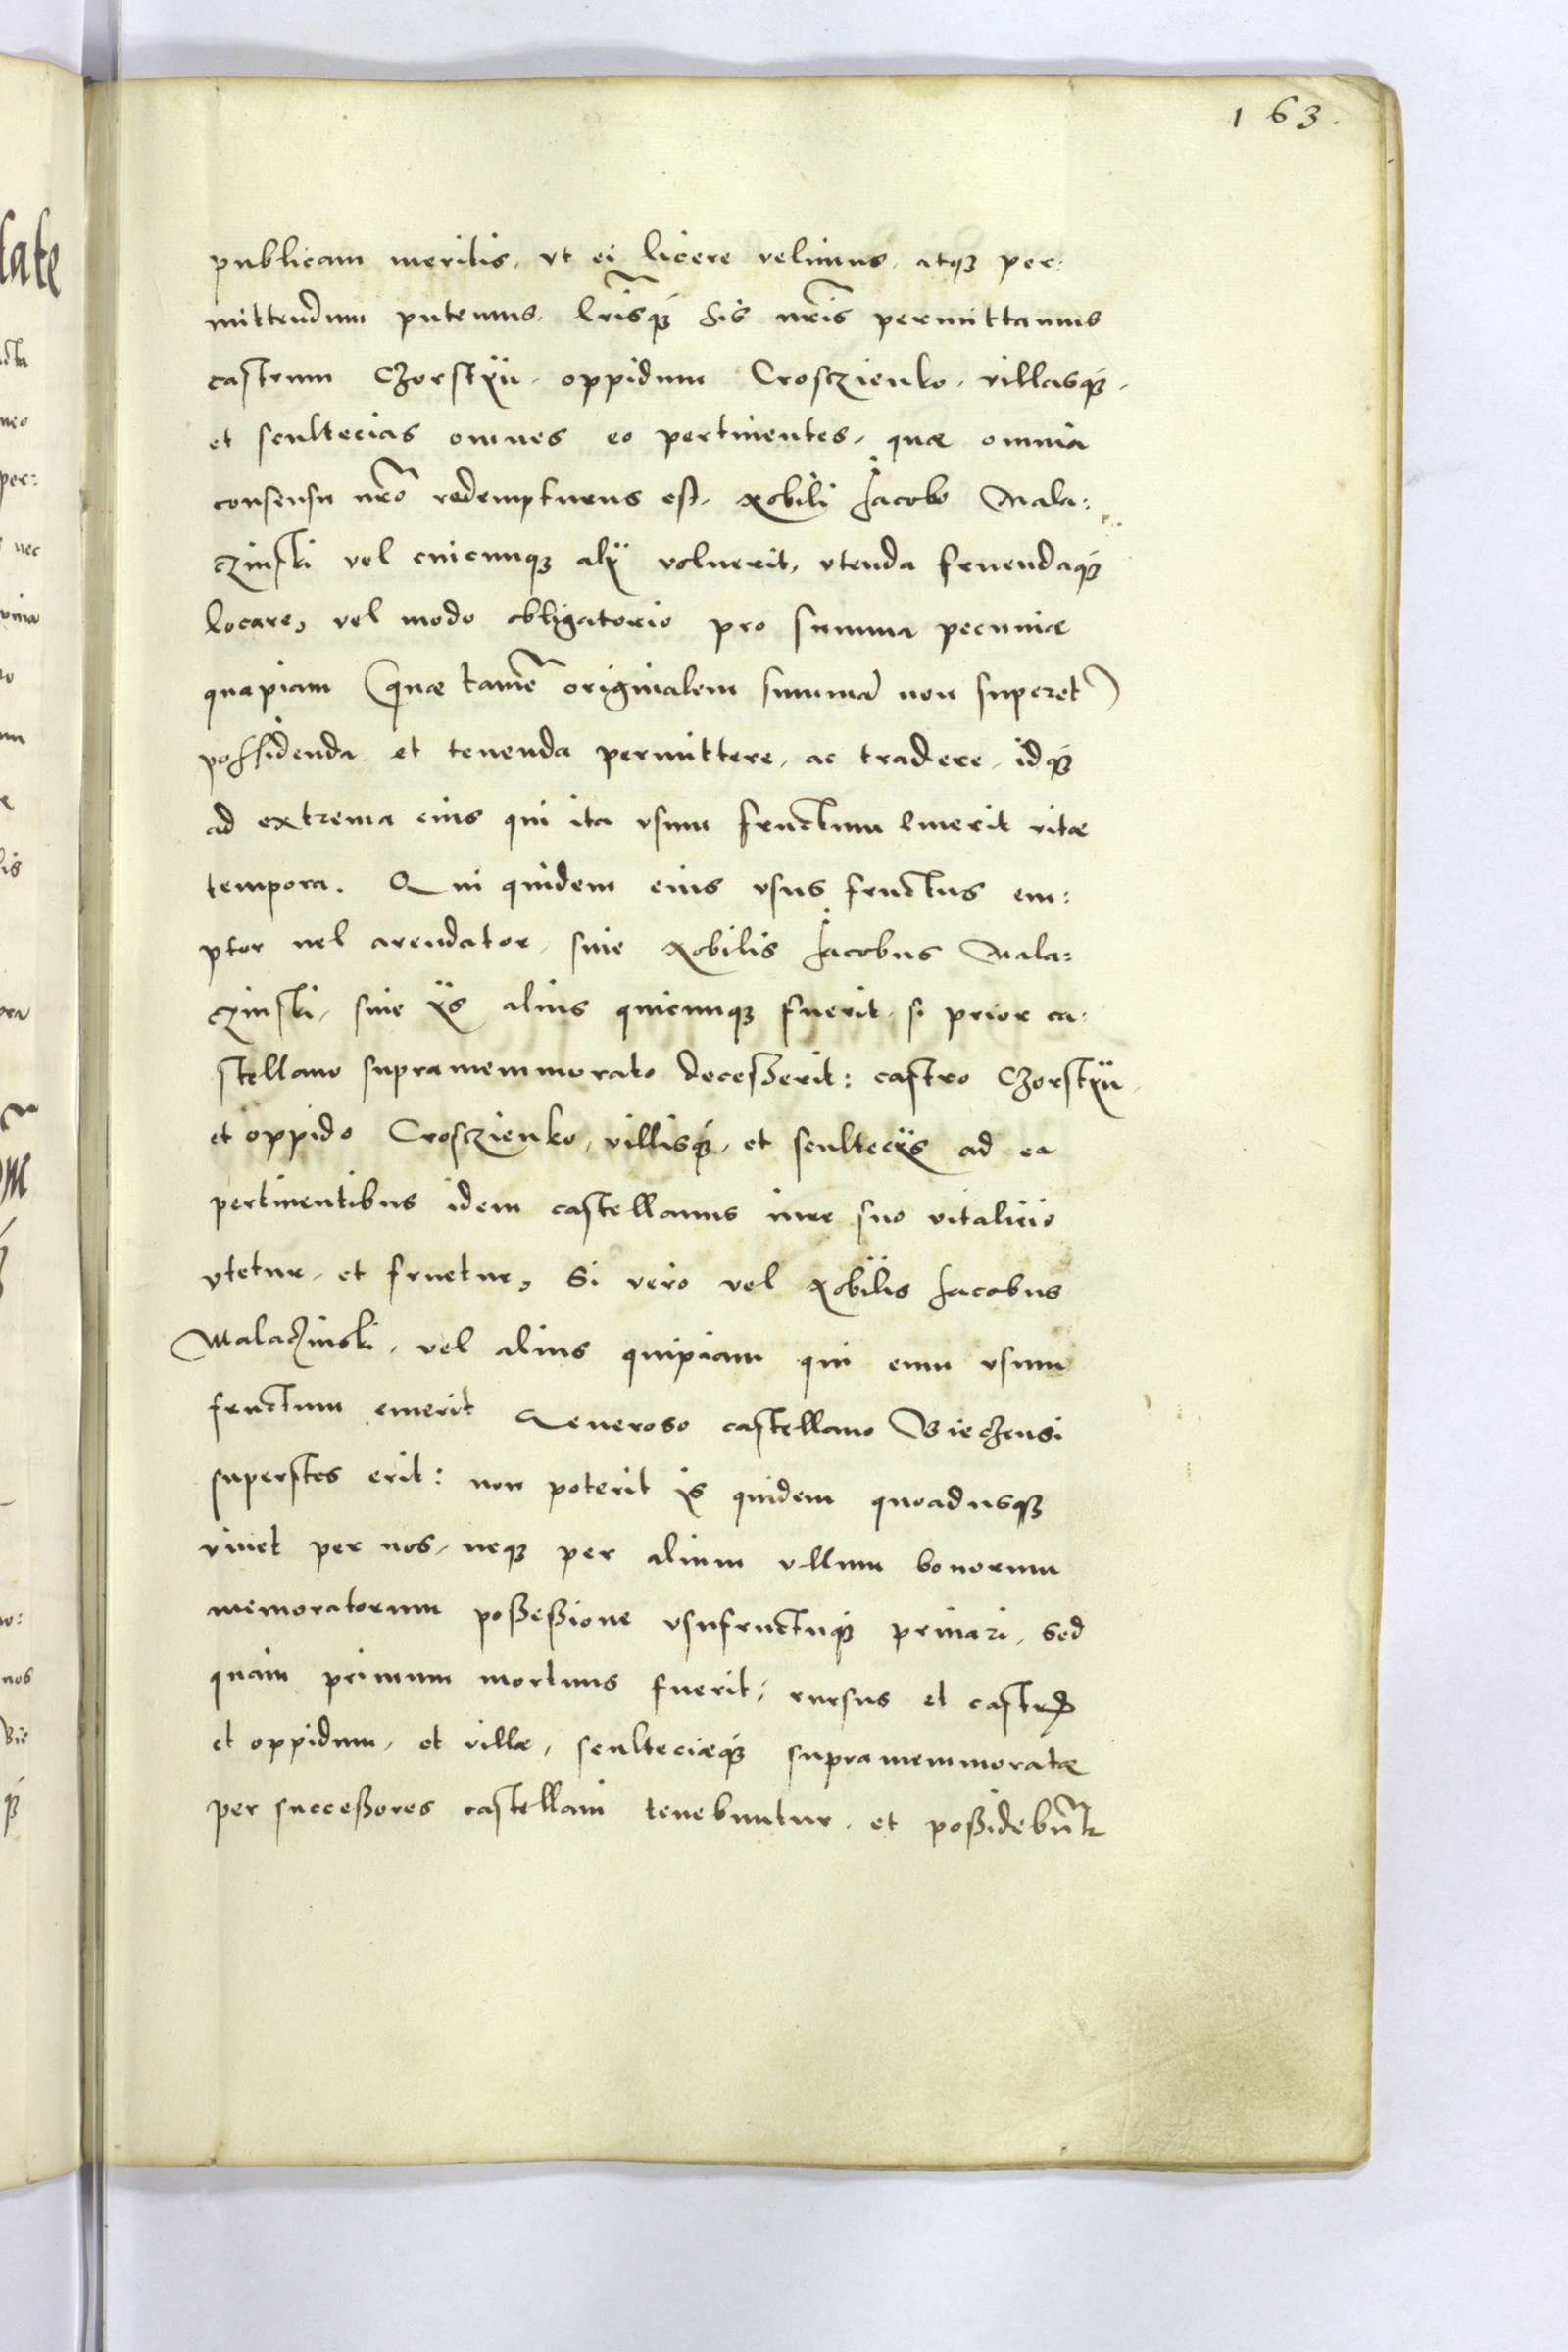 163.
publicam meritis, vt ei licere velimus, atq3 per:
mittendum putemus, lr̃isq3 his nr̃is permittamus
castrum Czorstÿn, oppidum Crosczienko, villasq3,
et scultecias omnes eo pertinentes, quæ omnia
consensu nr̃o redempturus est, Nobili Jacobo Mala:
czinski vel cuicunq3 alÿ voluerit, vtenda fruendaq3
locare, vel modo obligatorio pro summa pecuniæ
quapiam (quæ tamẽ originalem summã non superet)
possidenda et tenenda permittere, ac tradere, idq3
ad extrema eius qui ita vsum fructum emerit vitæ
tempora. Qui quidem eius vsus fructus em:
ptor uel arendator, siue Nobilis Jacobus Mala:
czinski, siue ÿs alius quicunq3 fuerit, si prior ca:
stellano supramemmorato decesserit: castro Czorstÿn,
et oppido Crosczienko, villisq3, et scultecÿs ad ea
pertinentibus idem castellanus iure suo vitalicio
vtetur, et fruetur, Si vero vel Nobilis Jacobus
Malaczinski, vel alius quipiam qui eum vsum
fructum emerit Generoso castellano Bieczensi
superstes erit: non poterit ÿs quidem quoadusq3
viuet per nos, neq3 per alium vllum bonorum
memoratorum possessione vsufructuq3 priuari, Sed
quam primum mortuus fuerit, rursus et castrũ
et oppidum, et villæ, scultecieq3 supramemmoratæ
per successores castellani tenebuntur, et possidebũtr